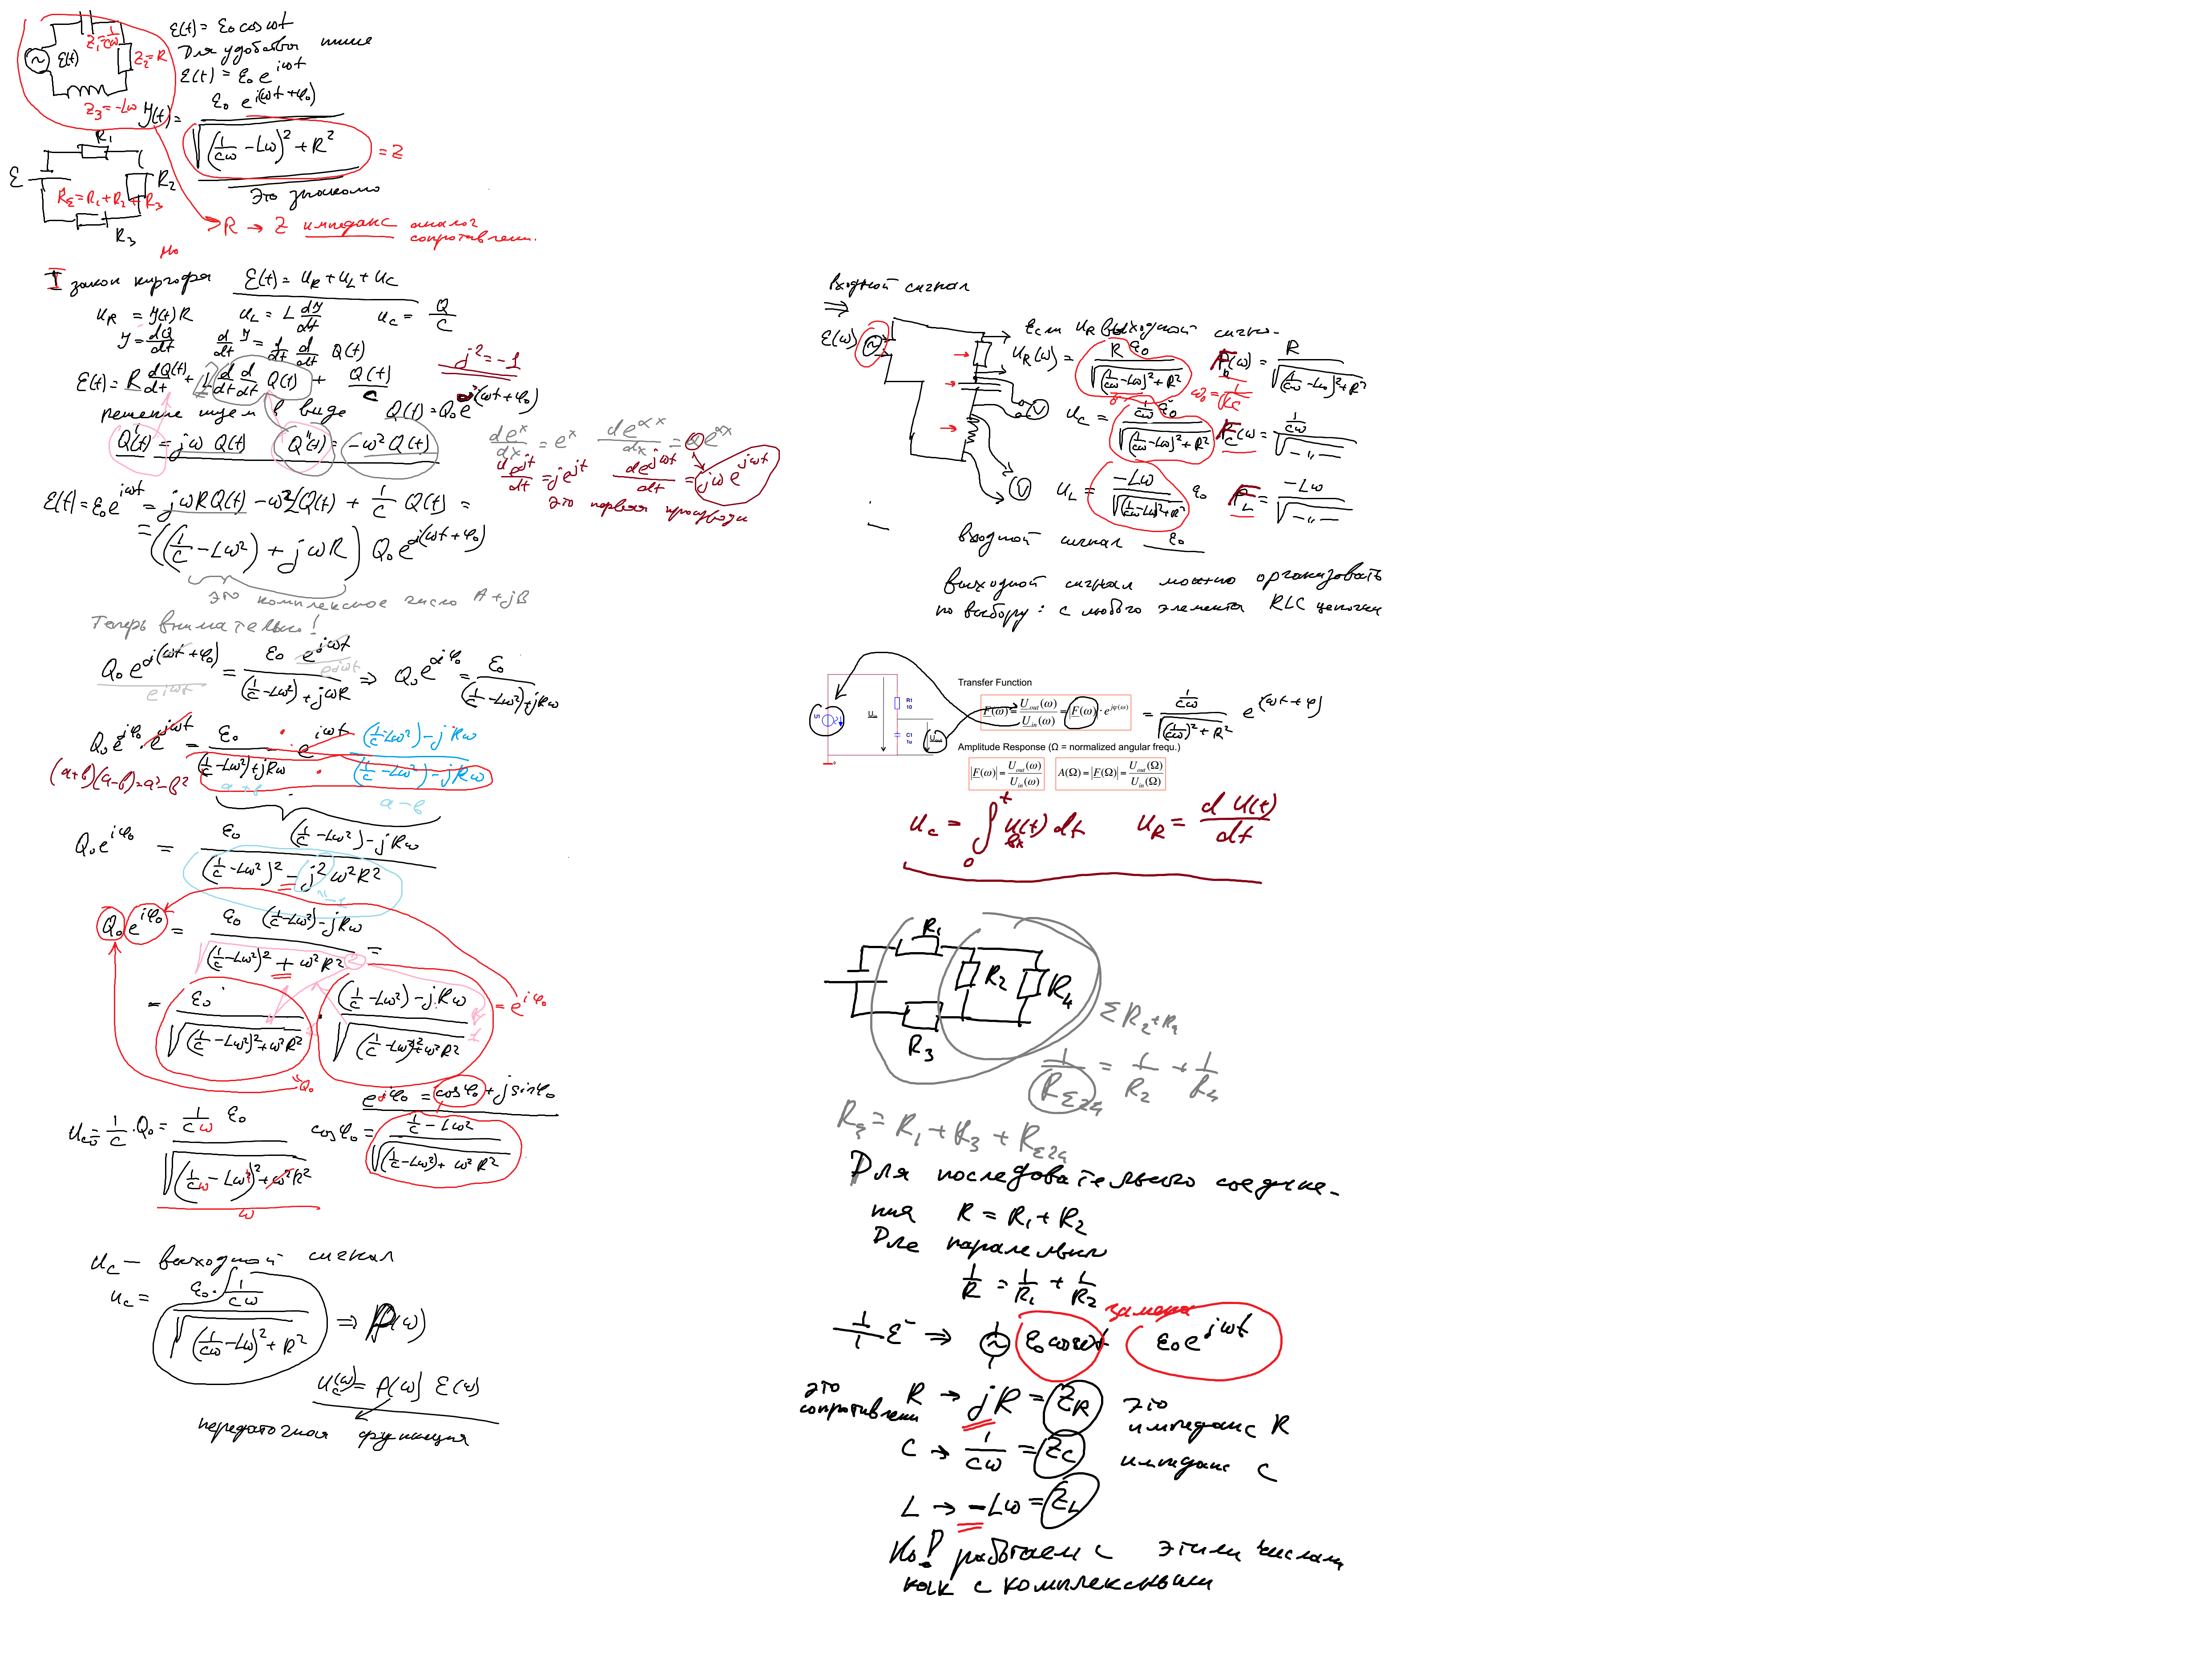 Z₁=1/cω
ε(t)
Z₂=R
Z₃=-Lω
ε(t) = ε₀ cos ωt
Для удобства пише
ε(t) = ε₀ e^{iωt}
Y(t) = ε₀ e^{i(ωt+φ₀)} / √((1/cω - Lω)² + R²) = Z
Это знакомо
R₁
ε
R₂
R_Σ = R₁ + R₂ + R₃
R₃
R → Z импеданс аналог
сопротивлени.
Но
I закон кирхгофа ε(t) = u_R + u_L + u_C
u_R = Y(t) R u_L = L dY/dt u_C = Q/C
Y = dQ/dt d/dt Y = d/dt d/dt Q(t)
ε(t) = R dQ(t)/dt + L d/dt d/dt Q(t) + Q(t)/C
j² = -1
решение ищем в виде Q(t) = Q₀ e^{j(ωt+φ₀)}
Q'(t) = jω Q(t) Q''(t) = -ω² Q(t)
de^x/dx = e^x de^{αx}/dx = αe^{αx}
de^{jt}/dt = je^{jt} de^{jωt}/dt = jω e^{jωt}
это первая производн
ε(t) = ε₀ e^{iωt} = jωRQ(t) - ω²LQ(t) + 1/C Q(t) =
= ((1/C - Lω²) + jωR) Q₀ e^{j(ωt+φ₀)}
это комплексное число A + jB
Теперь внимательно!
Q₀ e^{j(ωt+φ₀)} / e^{iωt} = ε₀ e^{jωt} / ((1/C - Lω²) + jωR) e^{jωt} ⇒ Q₀ e^{jφ₀} = ε₀ / ((1/C - Lω²) + jRω)
Q₀ e^{iφ₀} · e^{jωt} = ε₀ / ((1/C - Lω²) + jRω) · e^{iωt} ((1/C - Lω²) - jRω) / ((1/C - Lω²) - jRω)
(a+b)(a-b) = a² - b²
a+b
a-b
Q₀ e^{iφ₀} = ε₀ (1/C - Lω²) - jRω / ((1/C - Lω²)² - j² ω² R²)
"-1
Q₀ e^{iφ₀} = ε₀ (1/C - Lω²) - jRω / ((1/C - Lω²)² + ω² R²) =
= ε₀ / √((1/C - Lω²)² + ω² R²) · (1/C - Lω²) - jRω / √((1/C - Lω²)² + ω² R²) = e^{iφ₀}
"Q₀
e^{jφ₀} = cos φ₀ + j sin φ₀
u_{C0} = 1/C · Q₀ = 1/Cω ε₀ / √((1/Cω - Lω)² + ω² R²)
ω
cos φ₀ = 1/C - Lω² / √((1/C - Lω²) + ω² R²)
u_C — выходной сигнал
u_C = ε₀ · 1/Cω / √((1/Cω - Lω)² + R²) ⇒ P(ω)
u_C(ω) = P(ω) ε(ω)
передаточная функция
Входной сигнал
⇒
ε(ω)
Если u_R выходной сигна.
u_R(ω) = R ε₀ / √((1/Cω - Lω)² + R²) F_R(ω) = R / √((1/Cω - Lω)² + R²)
ω₀ = 1/√LC
V
u_C = 1/Cω ε₀ / √((1/Cω - Lω)² + R²) F_C(ω = 1/Cω / √—〃—
V
u_L = -Lω / √((1/Cω - Lω)² + R²) ε₀ F_L = -Lω / √—〃—
входной сигнал ε₀
выходной сигнал можно организовать
по выбору: с любого элемента RLC цепочки
Transfer Function
R1
10
C1
1u
F(ω) = U_out(ω) / U_in(ω) = |F(ω)| · e^{jφ(ω)} = 1/Cω / √((1/Cω)² + R²) e^{i(ωt+φ)}
Amplitude Response (Ω = normalized angular frequ.)
|F(ω)| = U_out(ω) / U_in(ω) A(Ω) = |F(Ω)| = U_out(Ω) / U_in(Ω)
u_C = ∫₀^t u_вх(t) dt u_R = d u(t) / dt
R₁
R₂
R₄
R₃
Σ R₂+R₄
1/R_Σ24 = 1/R₂ + 1/R₄
R_Σ = R₁ + R₃ + R_Σ24
Для последовательного соедине-
ния R = R₁ + R₂
Для паралельн
1/R = 1/R₁ + 1/R₂
замена
ε ⇒ ε₀ cos ωt ε₀ e^{jωt}
это
сопротивлени R → jR = Z_R это
импеданс R
C → 1/Cω = Z_C импеданс C
L → -Lω = Z_L
Но! работаем с этими числами
как с комплексными